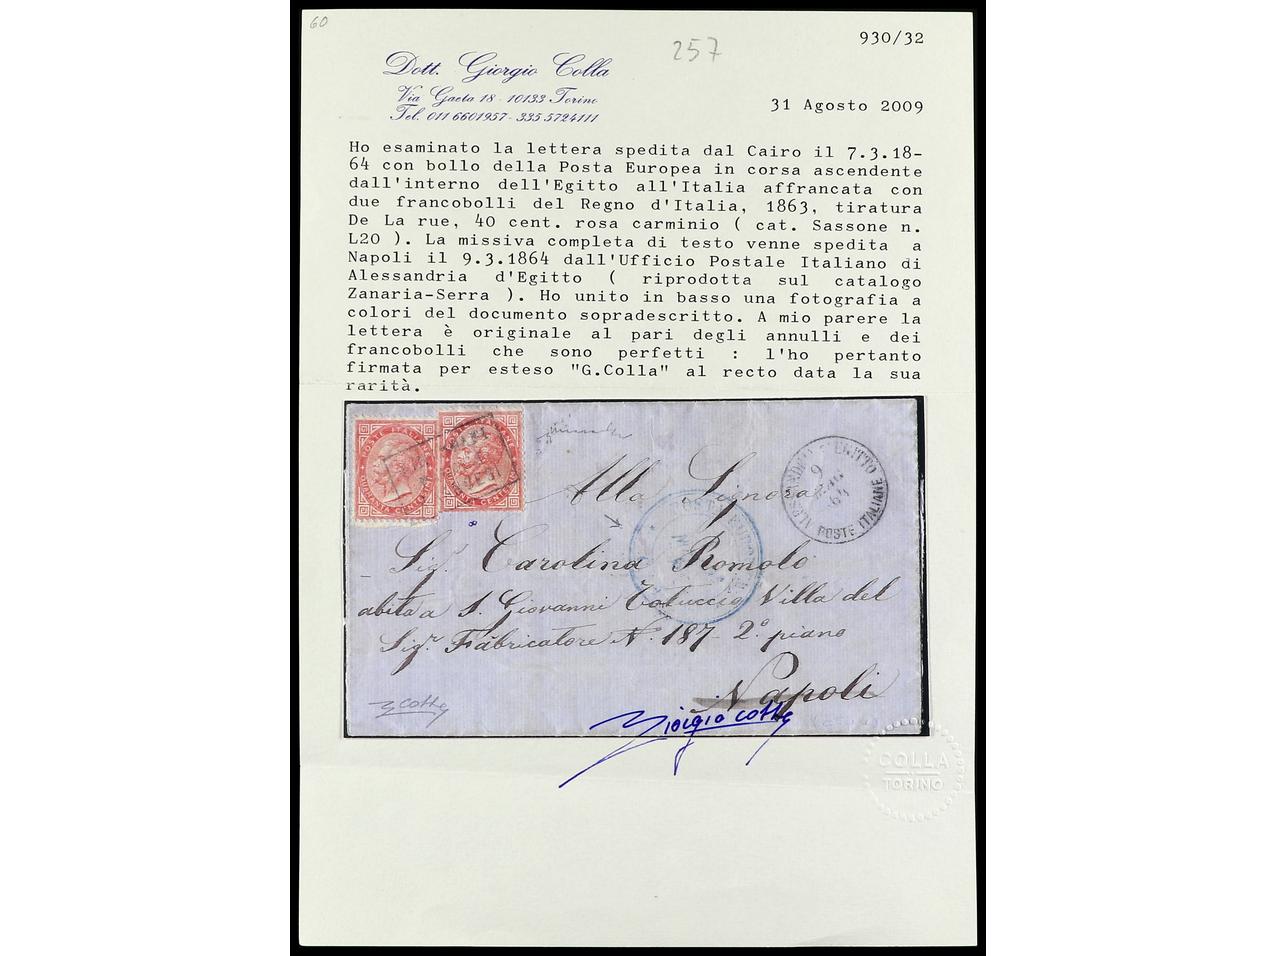 60
257
930/32
Dott. Giorgio Colla
Via Gaeta 18 - 10133 Torino
Tel. 011 6601957 - 335 5724111
31 Agosto 2009
Ho esaminato la lettera spedita dal Cairo il 7.3.18-
64 con bollo della Posta Europea in corsa ascendente
dall'interno dell'Egitto all'Italia affrancata con
due francobolli del Regno d'Italia, 1863, tiratura
De La rue, 40 cent. rosa carminio ( cat. Sassone n.
L20 ). La missiva completa di testo venne spedita a
Napoli il 9.3.1864 dall'Ufficio Postale Italiano di
Alessandria d'Egitto ( riprodotta sul catalogo
Zanaria-Serra ). Ho unito in basso una fotografia a
colori del documento sopradescritto. A mio parere la
lettera è originale al pari degli annulli e dei
francobolli che sono perfetti : l'ho pertanto
firmata per esteso "G.Colla" al recto data la sua
rarità.
POSTE ITALIANE
QUARANTA CENTESIMI
POSTE ITALIANE
QUARANTA CENTESIMI
ALESSANDRIA D'EGITTO
9
MAG
64
POSTE ITALIANE
Alla Signora
Sig.ra Carolina Romolo
abita a S. Giovanni Villa del
Sig.r Fabricatore N. 187 2º piano
Napoli
G Colla
Giorgio Colla
COLLA
TORINO